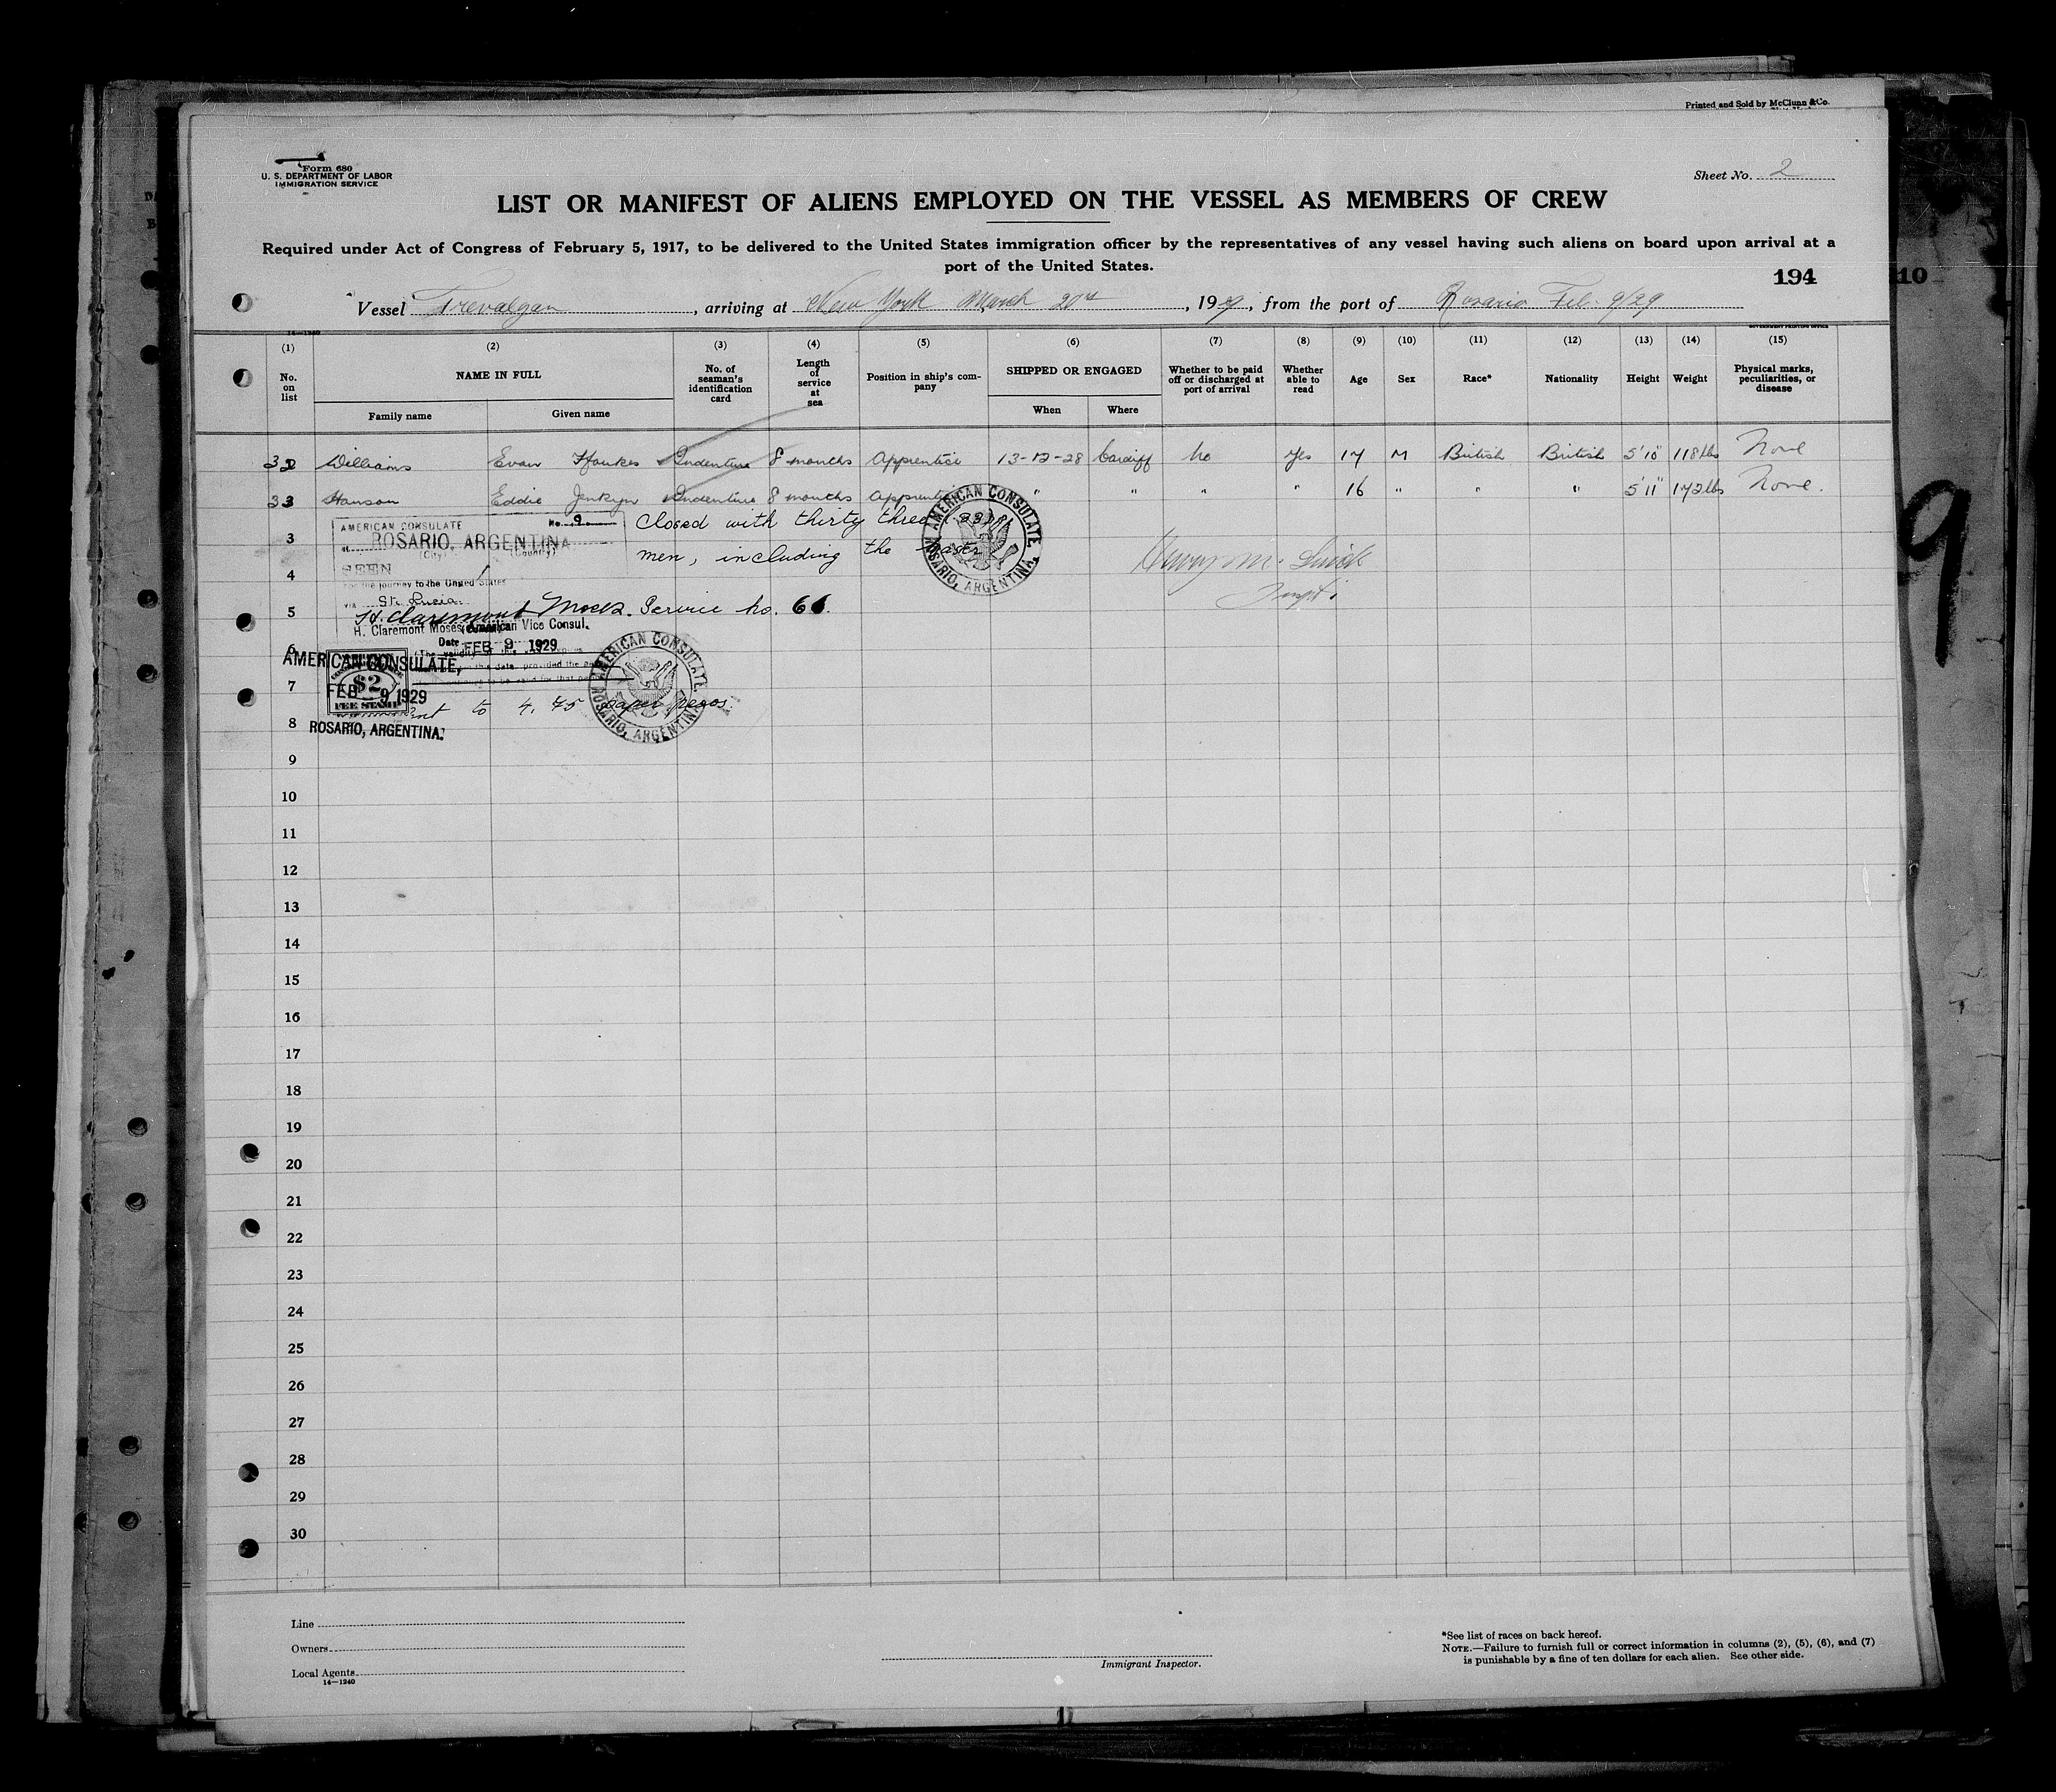 Printed and Sold by McClunn & Co.
Form 680
U. S. DEPARTMENT OF LABOR
IMMIGRATION SERVICE
Sheet No. 2
LIST OR MANIFEST OF ALIENS EMPLOYED ON THE VESSEL AS MEMBERS OF CREW
Required under Act of Congress of February 5, 1917, to be delivered to the United States immigration officer by the representatives of any vessel having such aliens on board upon arrival at a
port of the United States.
194
110
Vessel Trevalgan, arriving at New York March 20th, 1929, from the port of Rosario Feb. 9/29
14-1240
GOVERNMENT PRINTING OFFICE
(1) (2) (3) (4) (5) (6) (7) (8) (9) (10) (11) (12) (13) (14) (15)
No. on list NAME IN FULL No. of seaman's identification card Length of service at sea Position in ship's company SHIPPED OR ENGAGED Whether to be paid off or discharged at port of arrival Whether able to read Age Sex Race* Nationality Height Weight Physical marks, peculiarities, or disease
Family name Given name When Where
32 Williams Evan Ffoukes Indenture 8 months Apprentice 13-12-28 Cardiff No Yes 17 M British British 5'10" 118 lbs None
33 Hanson Eddie Jenkyn Indenture 8 months Apprentice " " " " 16 " " " 5'11" 172 lbs None.
AMERICAN CONSULATE No. 9
Closed with thirty three (33)
3
at ROSARIO, ARGENTINA
(City) (Country)
men, including the master
SEEN
4
For the journey to the United States
via St. Lucia.
5
H. Claremont Moses. Service No. 66.
H. Claremont Moses, American Vice Consul.
Date FEB 9 1929
6
AMERICAN CONSULATE,
$2
7
FEB 9 1929
FEE STAMP
to 4.75 paper pesos.
8
ROSARIO, ARGENTINA.
AMERICAN CONSULATE, ROSARIO, ARGENTINA.
AMERICAN CONSULATE, ROSARIO, ARGENTINA.
9
9
10
11
12
13
14
15
16
17
18
19
20
21
22
23
24
25
26
27
28
29
30
Line
Owners
Local Agents
14-1240
Immigrant Inspector.
*See list of races on back hereof.
NOTE.—Failure to furnish full or correct information in columns (2), (5), (6), and (7)
is punishable by a fine of ten dollars for each alien. See other side.